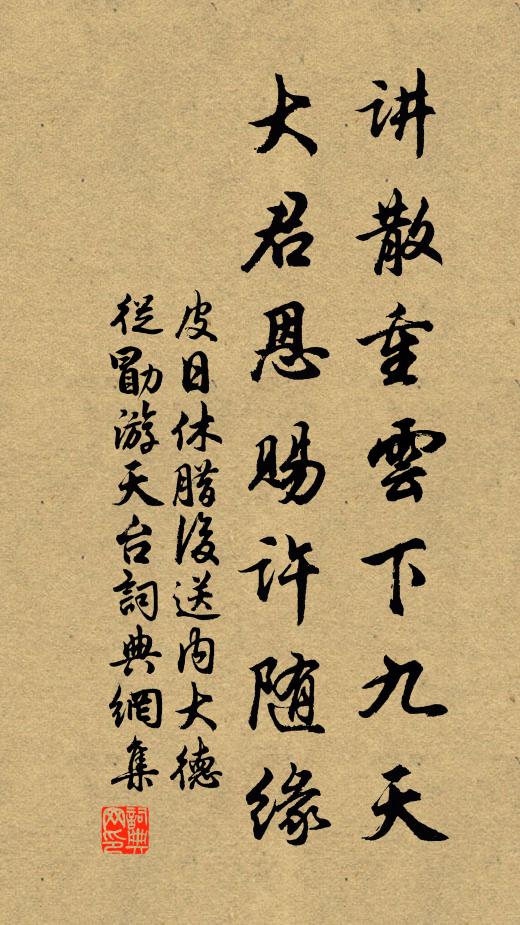 讲散重雲下九天
大君恩賜许随缘
皮日休腊後送内大德
從勖游天台詞典網集
詞典
网印